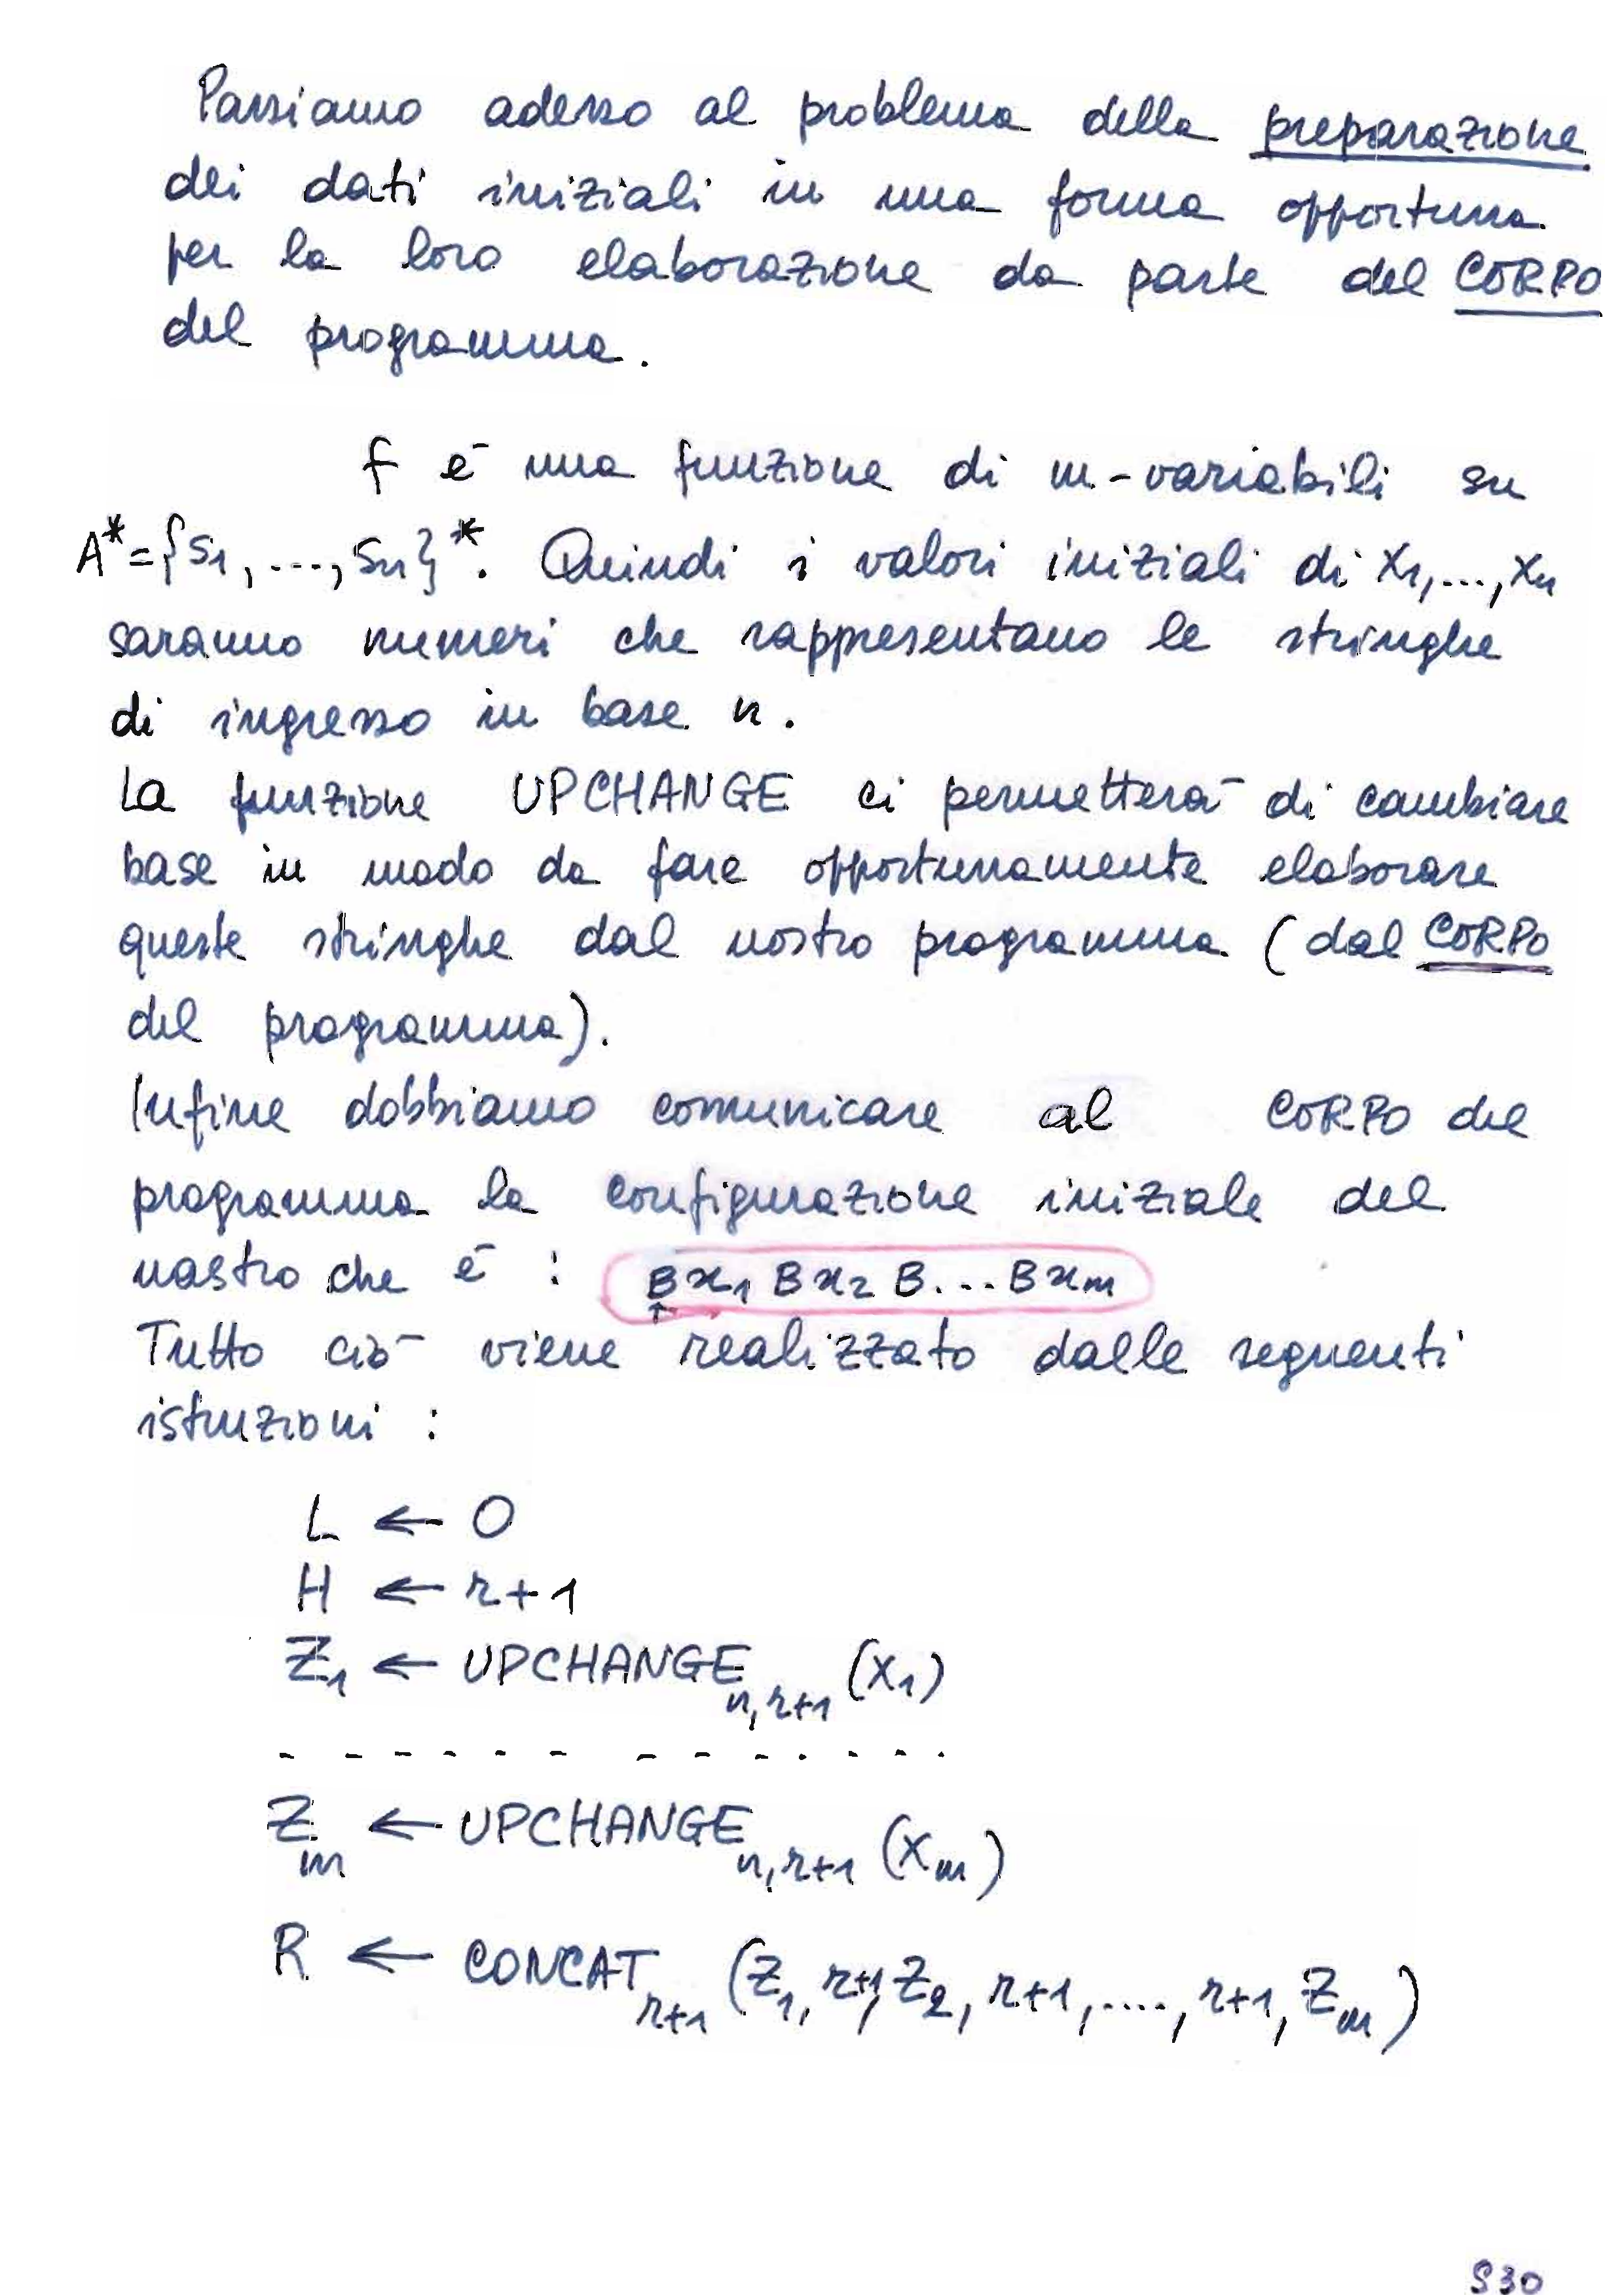 Passiamo adesso al problema della preparazione
dei dati iniziali in una forma opportuna
per la loro elaborazione da parte del CORPO
del programma.
f è una funzione di m-variabili su
A*={s1,...,sn}*. Quindi i valori iniziali di X1,...,Xn
saranno numeri che rappresentano le stringhe
di ingresso in base n.
La funzione UPCHANGE ci permetterà di cambiare
base in modo da fare opportunamente elaborare
queste stringhe dal nostro programma (dal CORPO
del programma).
Infine dobbiamo comunicare al CORPO del
programma la configurazione iniziale del
nastro che è : B x1 B x2 B...B xm
↑
Tutto ciò viene realizzato dalle seguenti
istruzioni :
L ← 0
H ← r+1
Z1 ← UPCHANGE n,r+1 (X1)
- - - - - - - - - - - - -
Zm ← UPCHANGE n,r+1 (Xm)
R ← CONCAT r+1 (Z1, r+1, Z2, r+1, ...., r+1, Zm)
S30